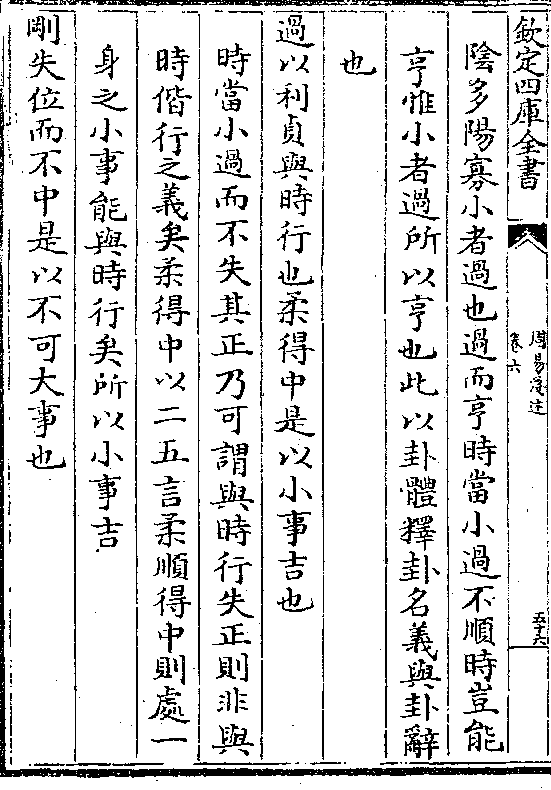 欽定四庫全書
周易淺述
卷六
五十六
陰多陽寡小者過也過而亨時當小過不順時豈能
亨惟小者過所以亨也此以卦體釋卦名義與卦辭
也
過以利貞與時行也柔得中是以小事吉也
時當小過而不失其正乃可謂與時行失正則非與
時偕行之義矣柔得中以二五言柔順得中則處一
身之小事能與時行矣所以小事吉
剛失位而不中是以不可大事也